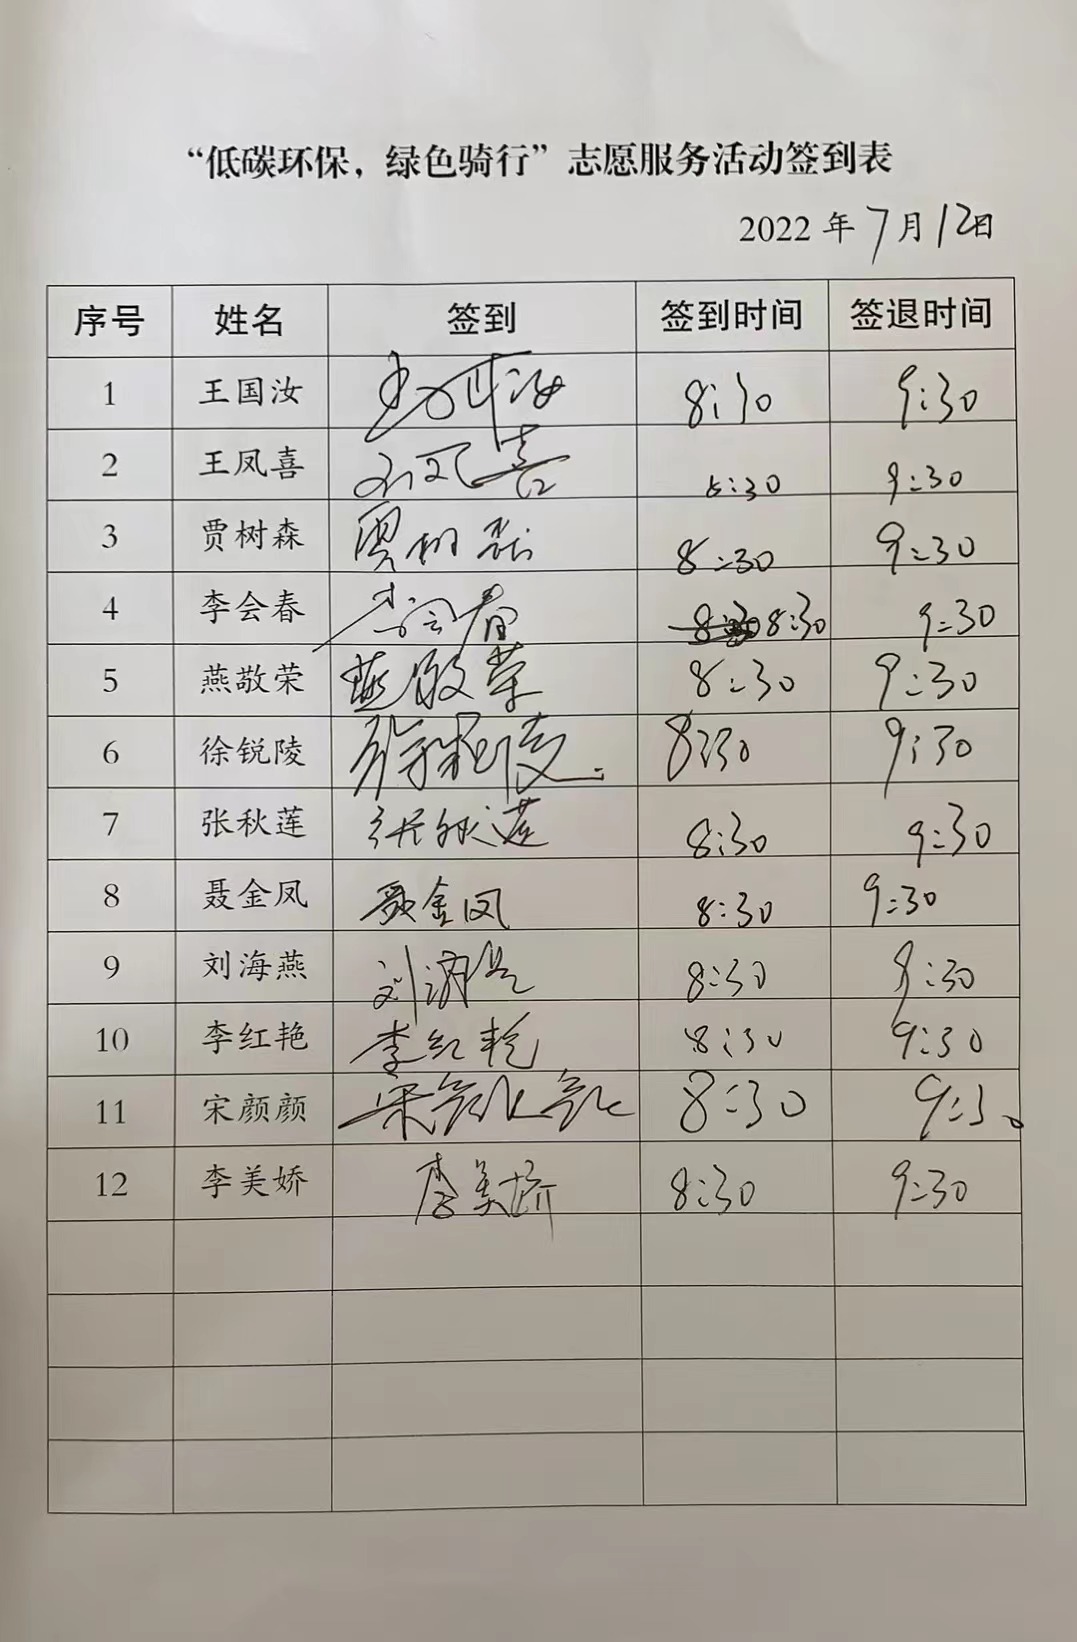 “低碳环保，绿色骑行”志愿服务活动签到表
2022 年 7 月 12日
序号 姓名 签到 签到时间 签退时间
1 王国汝 8:30 9:30
2 王凤喜 王凤喜 8:30 9:30
3 贾树森 贾树森 8:30 9:30
4 李会春 李会春 8:30 8:30 9:30
5 燕敬荣 燕敬荣 8:30 9:30
6 徐锐陵 徐锐陵 8:30 9:30
7 张秋莲 张秋莲 8:30 9:30
8 聂金凤 聂金凤 8:30 9:30
9 刘海燕 刘海燕 8:30 9:30
10 李红艳 李红艳 8:30 9:30
11 宋颜颜 宋颜颜 8:30 9:30
12 李美娇 李美娇 8:30 9:30